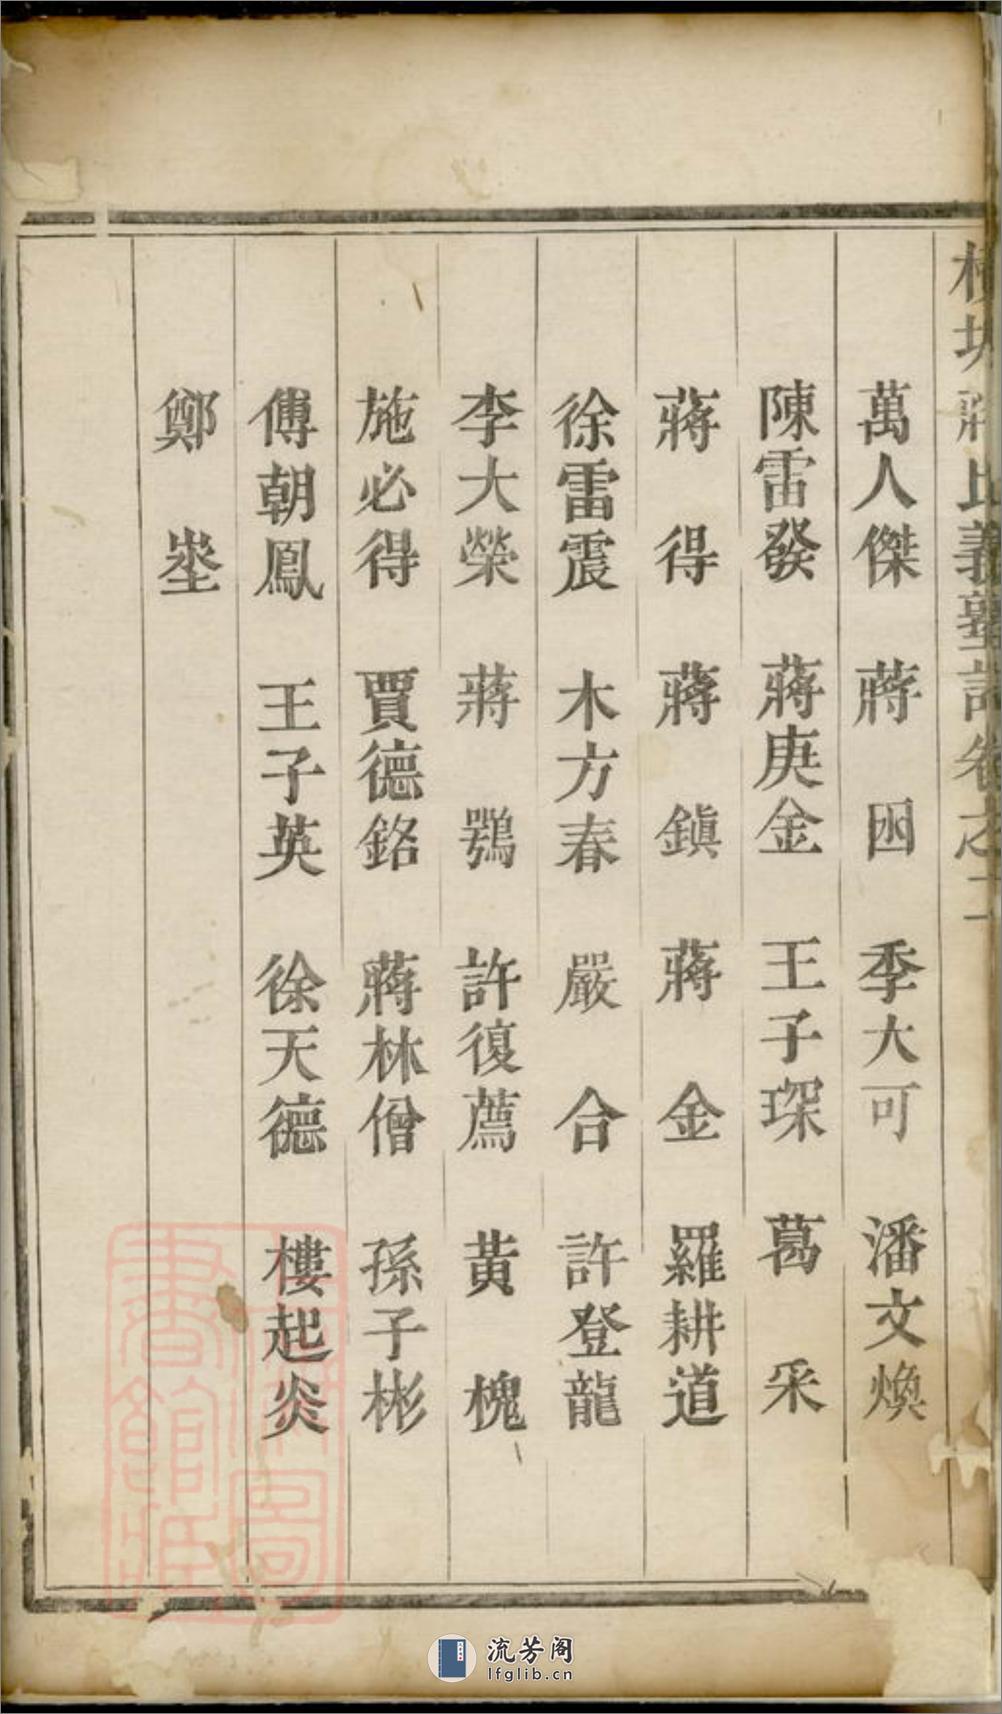 蔣氏義塾記卷之二
萬人傑 蔣囦 季大可 潘文煥
陳雷發 蔣庚金 王子琛 葛采
蔣得 蔣鎮 蔣金 羅耕道
徐雷震 木方春 嚴合 許登龍
李大榮 蔣鶚 許復薦 黃槐
施必得 賈德銘 蔣林僧 孫子彬
傅朝鳳 王子英 徐天德 樓起炎
鄭坓
流芳阁
lfglib.cn